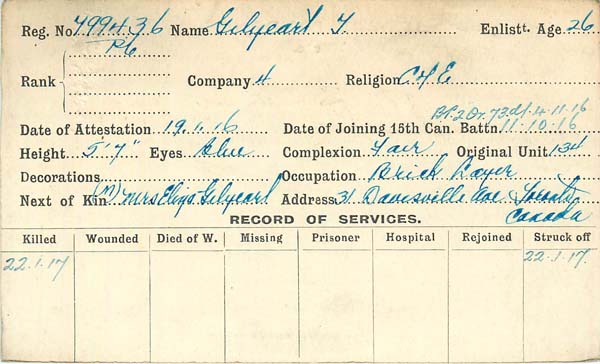 Reg. No. 799436 Name Gilyeart T. Enlistt. Age 26
Pte
Rank Company 4 Religion C of E
Pt. 2 Or. 73 d/. 4.11.16
Date of Attestation 19.1.16 Date of Joining 15th Can. Battn. 11.10.16
Height 5'7" Eyes Blue Complexion Fair Original Unit 134
Decorations Occupation Brick Layer
Next of Kin (M) Mrs Eliza Gilyeart Address 31 Davisville Ave Toronto
Canada
RECORD OF SERVICES.
Killed Wounded Died of W. Missing Prisoner Hospital Rejoined Struck off
22.1.17 22.1.17.